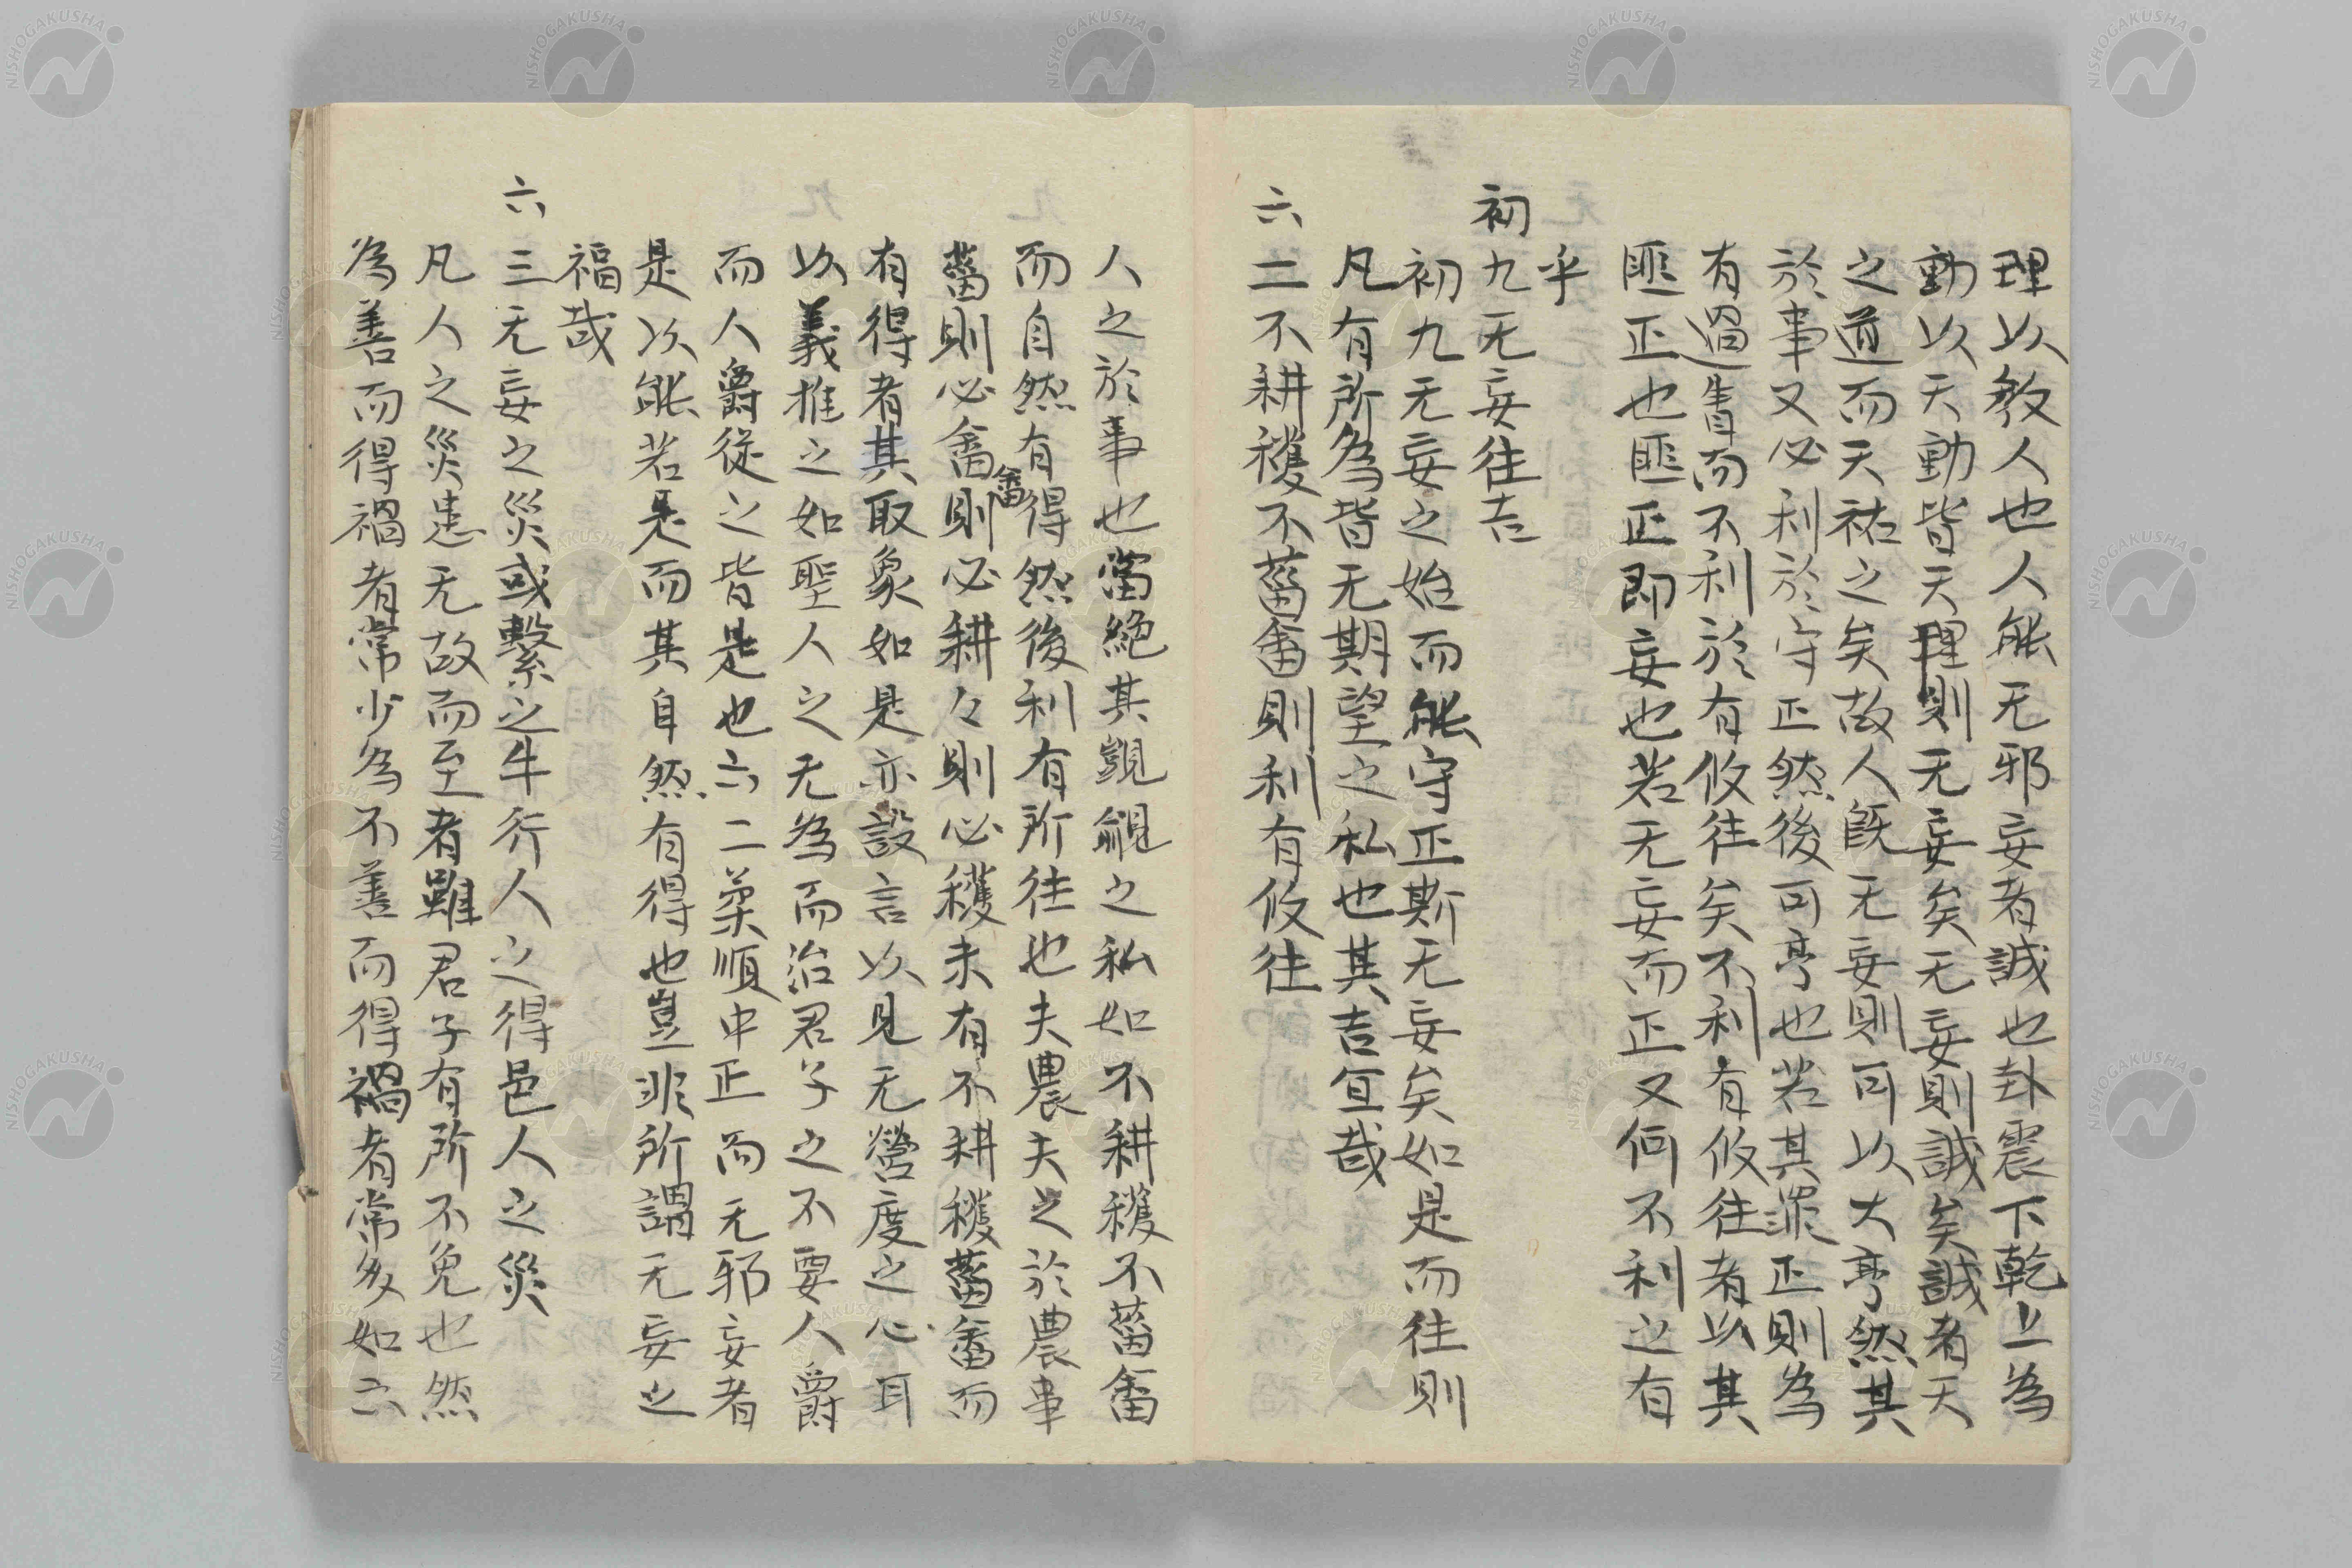 理以教人也人能无邪妄者誠也卦震下乾上為
動以天動皆天理則无妄矣无妄則誠矣誠者天
之道而天祐之矣故人既无妄則可以大亨然其
於事又必利於守正然後可亨也若其罪正則為
有過眚而不利於有攸往矣不利有攸往者以其
匪正也匪正即妄也若无妄而正又何不利之有
乎
初九无妄往吉
初九无妄之始而能守正斯无妄矣如是而往則
凡有所為皆无期望之私也其吉宜哉
六二不耕穫不菑畬則利有攸往
人之於事也當絕其覬覦之私如不耕穫不菑畬
而自然有得然後利有所往也夫農夫之於農事
菑則必畬畬則必耕々則必穫未有不耕穫菑畬而
有得者其取象如是亦設言以見无營度之心耳
以義推之如聖人之无為而治君子之不要人爵
而人爵從之皆是也六二柔順中正而无邪妄者
是以能若是而其自然有得也豈非所謂无妄之
福哉
六三无妄之災或繫之牛行人之得邑人之災
凡人之災患无故而至者雖君子有所不免也然
為善而得禍者常少為不善而得禍者常多如六
NISHOGAKUSHA